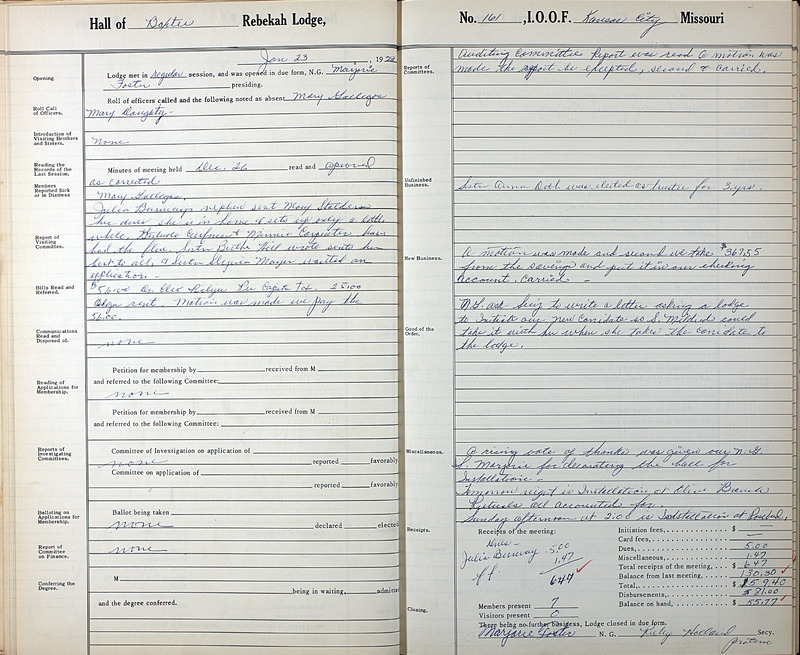 Hall of Baxter Rebekah Lodge,
Jan 23, 19
Opening.
Lodge met in regular session, and was opened in due form, N.G. Marjorie
Foster presiding.
Roll Call of Officers.
Roll of officers called and the following noted as absent Mary Gallegos
Mary Daughty -
Introduction of Visiting Brothers and Sisters.
None
Reading the Records of the Last Session.
Minutes of meeting held Dec. 26 read and
as corrected
Members Reported Sick or in Distress
Mary Gallegos.
Julia nephew sent Mary
his dues she is in home & sets up only a little
Report of Visiting Committee.
while. & Minnie Carpenter have
had the flu. Sister wrote sends her
best to all, & Sister waited on
application -
Bills Read and Referred.
$56.00 Per Capita tax. 25.00
sent. Motion was made we pay the
56.00.
Communications Read and Disposed of.
none
Petition for membership by received from M
and referred to the following Committee:
Reading of Applications for Membership.
none
Petition for membership by received from M
and referred to the following Committee:
Reports of Investigating Committees.
Committee of Investigation on application of
none reported favorably
Committee on application of
reported favorably
Balloting on Applications for Membership.
Ballot being taken
none declared elected
Report of Committee on Finance.
none
Conferring the Degree.
M
being in waiting, admitte
and the degree conferred.
No. 161, I.O.O.F. Kansas City Missouri
Reports of Committees.
Auditing Committee Report was read a motion was
made the report be excepted, second & carried.
Unfinished Business.
Sister Anna was elected as trustee for 3 yrs.
New Business.
A motion was made and second we take $367.55
from the savings and put it in our checking
account. Carried -
N.G. ask to write a letter asking a lodge
to Initiate our new Canidate so S. Mildred could
Good of the Order.
take it with her when she takes the canidate to
the lodge.
Miscellaneous.
A rising vote of thanks was given our N.G.
S. Marjorie for decorating the hall for
Installation -
Tomorrow night is Installation at Olive Branch
Rituals all accounted for.
Sunday afternoon at 2:00 is Installation at
Receipts.
Receipts of the meeting:
Dues -
Julia 5.00
1.47
6.47
Initiation fees, $
Card fees,
Dues, 5.00
Miscellaneous, 1.47
Total receipts of the meeting, $ 6.47
Balance from last meeting, 130.30
Total, $
Disbursements, 81.00
Balance on hand, $ 55.77
Members present 7
Visitors present 0
Closing.
There being no further business, Lodge closed in due form.
Marjorie Foster N. G. Ruby Holland Secy.
protem